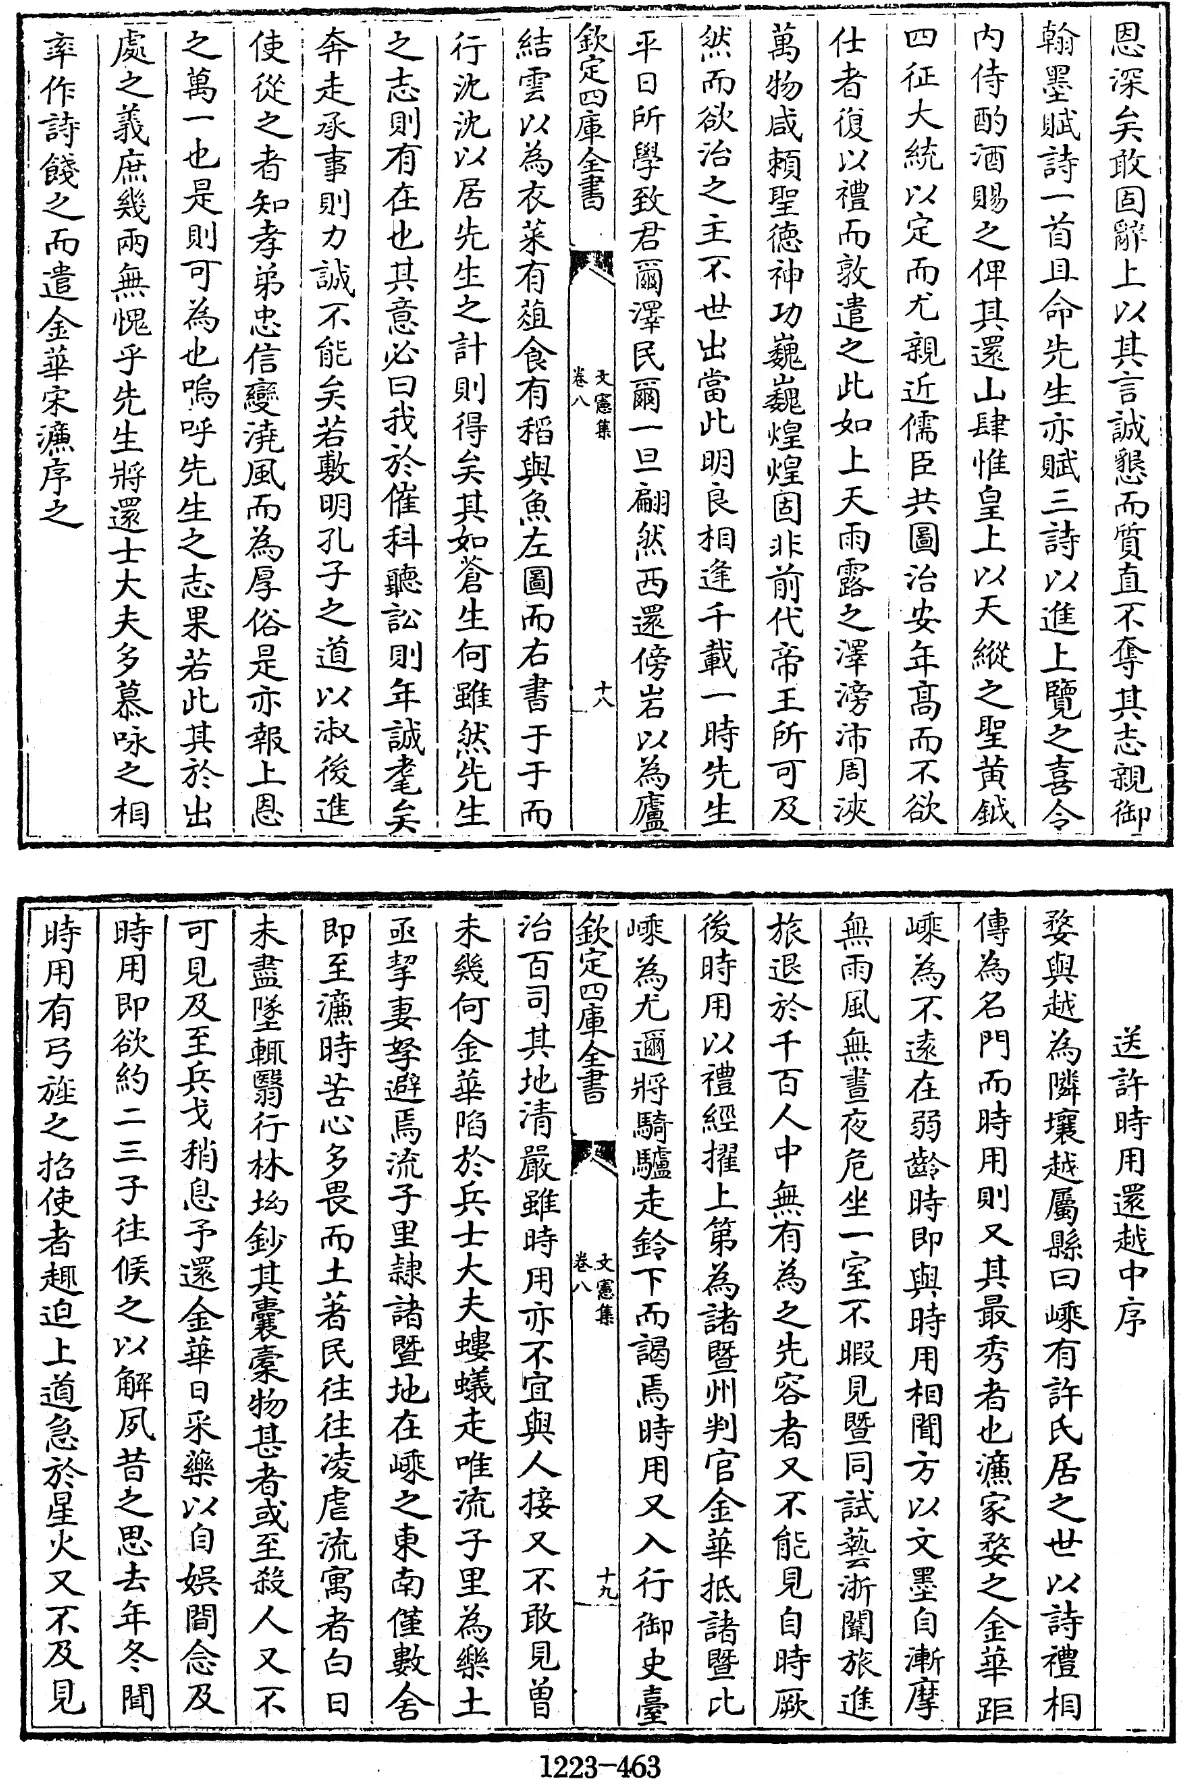 恩深矣敢固辭上以其言誠懇而質直不奪其志親御
翰墨賦詩一首且命先生亦賦三詩以進上覽之喜令
内侍酌酒賜之俾其還山肆惟皇上以天縱之聖黄鉞
四征大統以定而尤親近儒臣共圖治安年髙而不欲
仕者復以禮而敦遣之此如上天雨露之澤滂沛周浹
萬物咸頼聖徳神功巍巍煌煌固非前代帝王所可及
然而欲治之主不世出當此明良相逢千載一時先生
平日所學致君爾澤民爾一旦翩然西還傍岩以為廬
欽定四庫全書
文憲集
卷八
十八
結雲以為衣菜有葅食有稻與魚左圖而右書于于而
行沈沈以居先生之計則得矣其如蒼生何雖然先生
之志則有在也其意必曰我於催科聽訟則年誠耄矣
奔走承事則力誠不能矣若敷明孔子之道以淑後進
使從之者知孝弟忠信變澆風而為厚俗是亦報上恩
之萬一也是則可為也嗚呼先生之志果若此其於出
處之義庶幾兩無愧乎先生將還士大夫多慕咏之相
率作詩餞之而遣金華宋濂序之
送許時用還越中序
婺與越為隣壤越屬縣曰嵊有許氏居之世以詩禮相
傳為名門而時用則又其最秀者也濂家婺之金華距
嵊為不逺在弱齡時即與時用相聞方以文墨自漸摩
無雨風無晝夜危坐一室不暇見暨同試藝浙闈旅進
旅退於千百人中無有為之先容者又不能見自時厥
後時用以禮經擢上第為諸暨州判官金華抵諸暨比
嵊為尤邇將騎驢走鈴下而謁焉時用又入行御史臺
欽定四庫全書
文憲集
卷八
十九
治百司其地清嚴雖時用亦不宜與人接又不敢見曽
未幾何金華陷於兵士大夫螻蟻走唯流子里為樂土
亟挈妻孥避焉流子里隷諸暨地在嵊之東南僅數舍
即至濂時苦心多畏而土著民往往凌虐流寓者白日
未盡墜輒翳行林坳鈔其囊橐物甚者或至殺人又不
可見及至兵戈稍息予還金華日采藥以自娯間念及
時用即欲約二三子往候之以解夙昔之思去年冬聞
時用有弓旌之招使者趣迫上道急於星火又不及見
1223-463